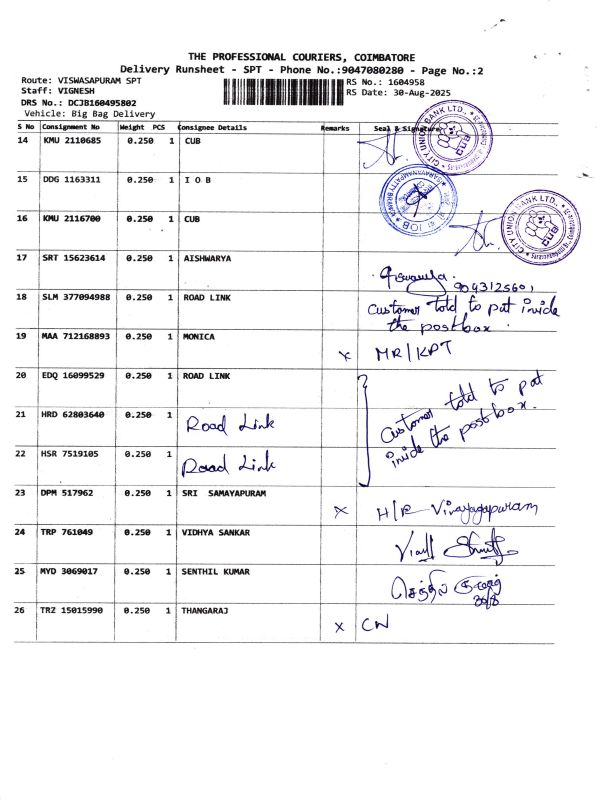 THE PROFESSIONAL COURIERS, COIMBATORE
Delivery Runsheet - SPT - Phone No.:9047080280 - Page No.:2
Route: VISWASAPURAM SPT
RS No.: 1604958
Staff: VIGNESH
RS Date: 30-Aug-2025
DRS No.: DCJB160495802
Vehicle: Big Bag Delivery
S No Consignment No Weight PCS Consignee Details Remarks Seal & Signature
14 KMU 2110685 0.250 1 CUB
CITY UNION BANK LTD., CUB
15 DDG 1163311 0.250 1 I O B
IOB
16 KMU 2116700 0.250 1 CUB
CITY UNION BANK LTD., CUB
17 SRT 15623614 0.250 1 AISHWARYA
9043125601
18 SLM 377094988 0.250 1 ROAD LINK Customer told to put inside
the postbox.
19 MAA 712168893 0.250 1 MONICA
x MR/KPT
20 EDQ 16099529 0.250 1 ROAD LINK
21 HRD 62803640 0.250 1 Road Link Customer told to put
inside the postbox.
22 HSR 7519105 0.250 1 Road Link
23 DPM 517962 0.250 1 SRI SAMAYAPURAM
x H/R Vinayagapuram
24 TRP 761049 0.250 1 VIDHYA SANKAR
25 MYD 3069017 0.250 1 SENTHIL KUMAR
செந்தில் குமார்
30/8
26 TRZ 15015990 0.250 1 THANGARAJ
x CN